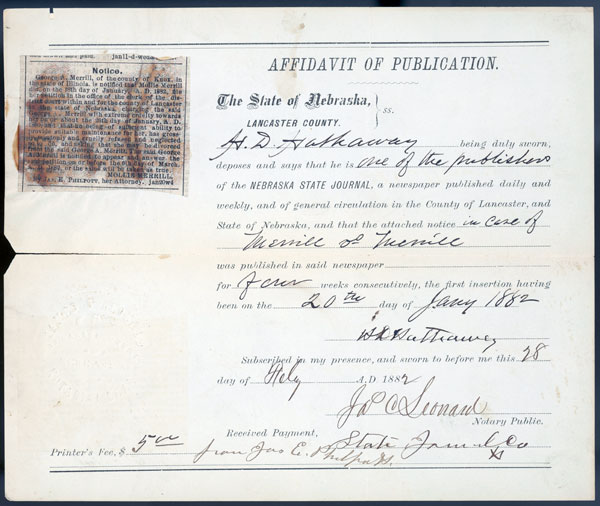 jan11-d-
Notice.
George A. Merrill, of the county of Knox, in
the state of Illinois, is notified that Mollie Merrill
did, on the day of January, A. D. 1882, file
her petition in the office of the clerk of the dis-
trict court within and for the county of Lancaster
the state of Nebraska, charging the said
George Merrill with extreme cruelty towards
her on or about the 26th day of January, A. D.
and that being of sufficient ability to
provide suitable maintenance for her, has gross-
ly and cruelly refused and neglected
so to do, and asking that she may be divorced
The said George
A. Merrill is notified to appear and answer the
petition on or before the day of March,
or the same will be taken as true.
MOLLIE MERRILL,
By Jas. E. Philpott, her Attorney.
AFFIDAVIT OF PUBLICATION.
The State of Nebraska, } ss.
LANCASTER COUNTY.
H. D. Hathaway being duly sworn,
deposes and says that he is one of the publishers
of the NEBRASKA STATE JOURNAL, a newspaper published daily and
weekly, and of general circulation in the County of Lancaster, and
State of Nebraska, and that the attached notice in case of
Merrill vs Merrill
was published in said newspaper
for four weeks consecutively, the first insertion having
been on the 20th day of Jany 1882
H D Hathaway
Subscribed in my presence, and sworn to before me this 28
day of Feby A.D 1882
Jno C Leonard
Notary Public.
Received Payment, State Journal Co
Printer's Fee, $ 5 00 from Jas E. Philpott.